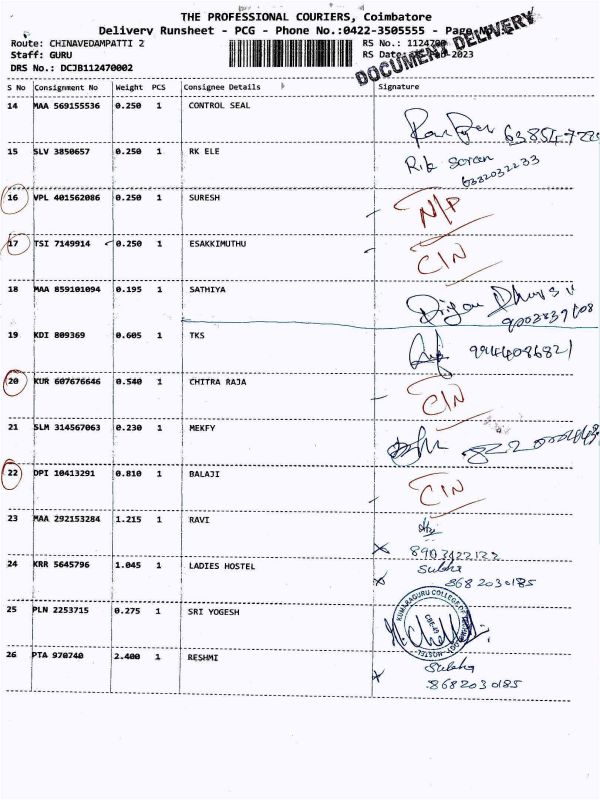 THE PROFESSIONAL COURIERS, Coimbatore
Delivery Runsheet - PCG - Phone No.:0422-3505555 - Page
Route: CHINAVEDAMPATTI 2
RS No.:
Staff: GURU
RS Date: 2023
DRS No.: DCJB112470002
DOCUMENT DELIVERY
S No Consignment No Weight PCS Consignee Details Signature
14 MAA 569155536 0.250 1 CONTROL SEAL
15 SLV 3850657 0.250 1 RK ELE
6382032233
16 VPL 401562086 0.250 1 SURESH N/P
17 TSI 7149914 0.250 1 ESAKKIMUTHU C/N
18 MAA 859101094 0.195 1 SATHIYA
19 KDI 809369 0.605 1 TKS 9944086821
20 KUR 607676646 0.540 1 CHITRA RAJA C/N
21 SLM 314567063 0.230 1 MEKFY
22 DPI 10413291 0.810 1 BALAJI C/N
23 MAA 292153284 1.215 1 RAVI
8903422122
24 KRR 5645796 1.045 1 LADIES HOSTEL Subha
8682030185
25 PLN 2253715 0.275 1 SRI YOGESH
KUMARAGURU COLLEGE OF
HOSTEL
26 PTA 970740 2.400 1 RESHMI Subha
8682030185